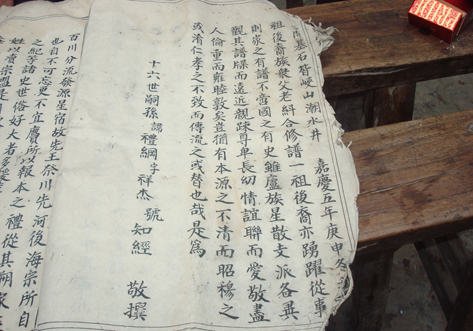 墓石脊峽山潮水井 嘉慶五年庚申冬
祖後裔族衆父老糾合修譜一祖後裔亦踴躍從事
則家之有譜不啻國之有史雖廬族星散文派各異
觀其譜牒而遠近親踈尊卑長幼情誼聯而愛敬盡
人倫重而雍睦敦矣豈猶有本源之不清而昭穆之
或淆仁孝之不致而傳流之或替也哉是爲
十六世嗣孫諱禮綱字祥杰 號 知經 敬撰
百川分流餘源星宿故先王祭川先河後海宗所自
也自不可忘更不宜賡以報本之禮從其朔
之紀等諸史世俗好大者多
姓以賁宗盟是